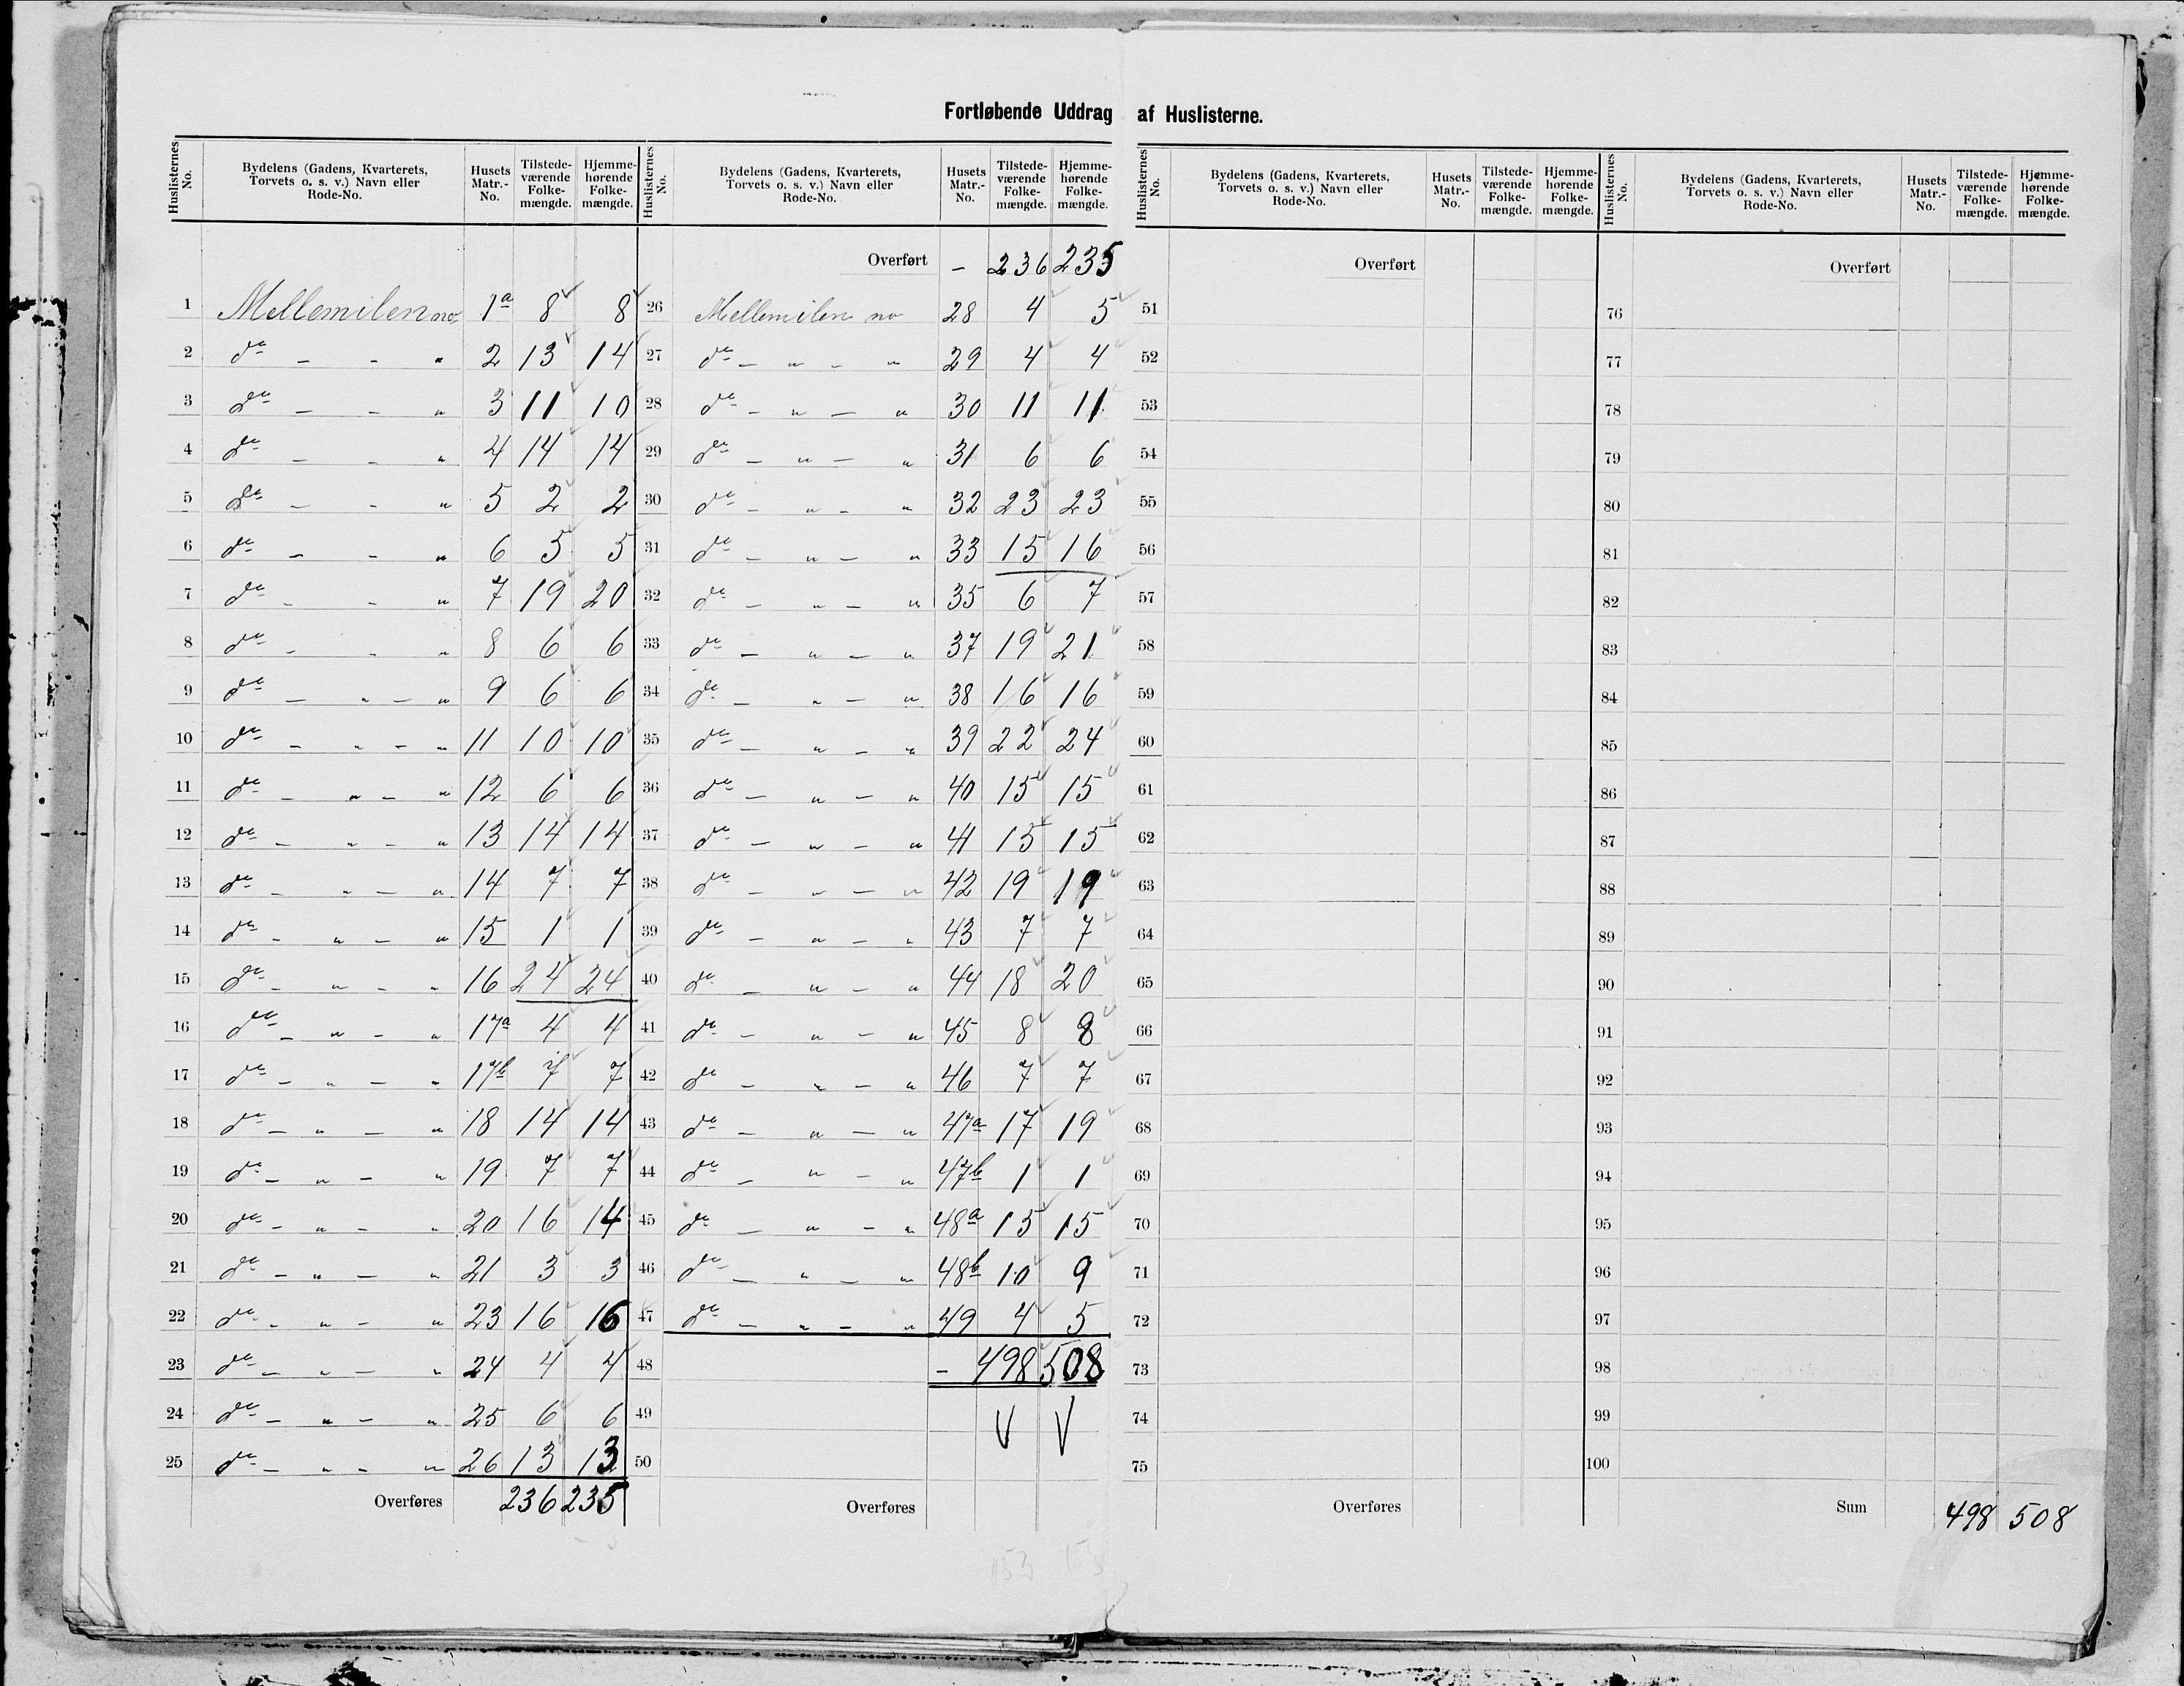 Fortløbende Uddrag af Huslisterne.
Huslisternes No. Bydelens (Gadens, Kvarterets, Torvets o. s. v.) Navn eller Rode-No. Husets Matr.-No. Tilstedeværende Folkemængde. Hjemmehørende Folkemængde.
1 Mellemilen no. 1a 8 8
2 do - - " 2 13 14
3 do - - " 3 11 10
4 do - - " 4 14 14
5 do - - " 5 2 2
6 do - - " 6 5 5
7 do - - " 7 19 20
8 do - - " 8 6 6
9 do - " - " 9 6 6
10 do - " - " 11 10 10
11 do - " - " 12 6 6
12 do - " - " 13 14 14
13 do - " - " 14 7 7
14 do - " - " 15 1 1
15 do - " - " 16 24 24
16 do - " - " 17a 4 4
17 do - " - " 17b 7 7
18 do - " - " 18 14 14
19 do - " - " 19 7 7
20 do - " - " 20 16 14
21 do - " - " 21 3 3
22 do - " - " 23 16 16
23 do - " - " 24 4 4
24 do - " - " 25 6 6
25 do - " - " 26 13 13
Overføres 236 235
Huslisternes No. Bydelens (Gadens, Kvarterets, Torvets o. s. v.) Navn eller Rode-No. Husets Matr.-No. Tilstedeværende Folkemængde. Hjemmehørende Folkemængde.
Overført - 236 235
26 Mellemilen no 28 4 5
27 do - " - " 29 4 4
28 do - " - " 30 11 11
29 do - " - " 31 6 6
30 do - " - " 32 23 23
31 do - " - " 33 15 16
32 do - " - " 35 6 7
33 do - " - " 37 19 21
34 do - " - " 38 16 16
35 do - " - " 39 22 24
36 do - " - " 40 15 15
37 do - " - " 41 15 15
38 do - " - " 42 19 19
39 do - " - " 43 7 7
40 do - " - " 44 18 20
41 do - " - " 45 8 8
42 do - " - " 46 7 7
43 do - " - " 47a 17 19
44 do - " - " 47b 1 1
45 do - " - " 48a 15 15
46 do - " - " 48b 10 9
47 do - " - " 49 4 5
48 - 498 508
49
50
Overføres
Huslisternes No. Bydelens (Gadens, Kvarterets, Torvets o. s. v.) Navn eller Rode-No. Husets Matr.-No. Tilstedeværende Folkemængde. Hjemmehørende Folkemængde.
Overført
51
52
53
54
55
56
57
58
59
60
61
62
63
64
65
66
67
68
69
70
71
72
73
74
75
Overføres
Huslisternes No. Bydelens (Gadens, Kvarterets, Torvets o. s. v.) Navn eller Rode-No. Husets Matr.-No. Tilstedeværende Folkemængde. Hjemmehørende Folkemængde.
Overført
76
77
78
79
80
81
82
83
84
85
86
87
88
89
90
91
92
93
94
95
96
97
98
99
100
Sum 498 508